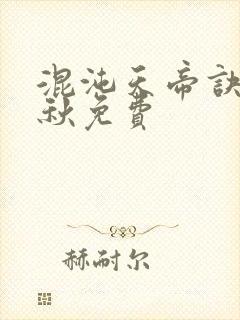 混沌天帝訣
秋免費
赫耐尔